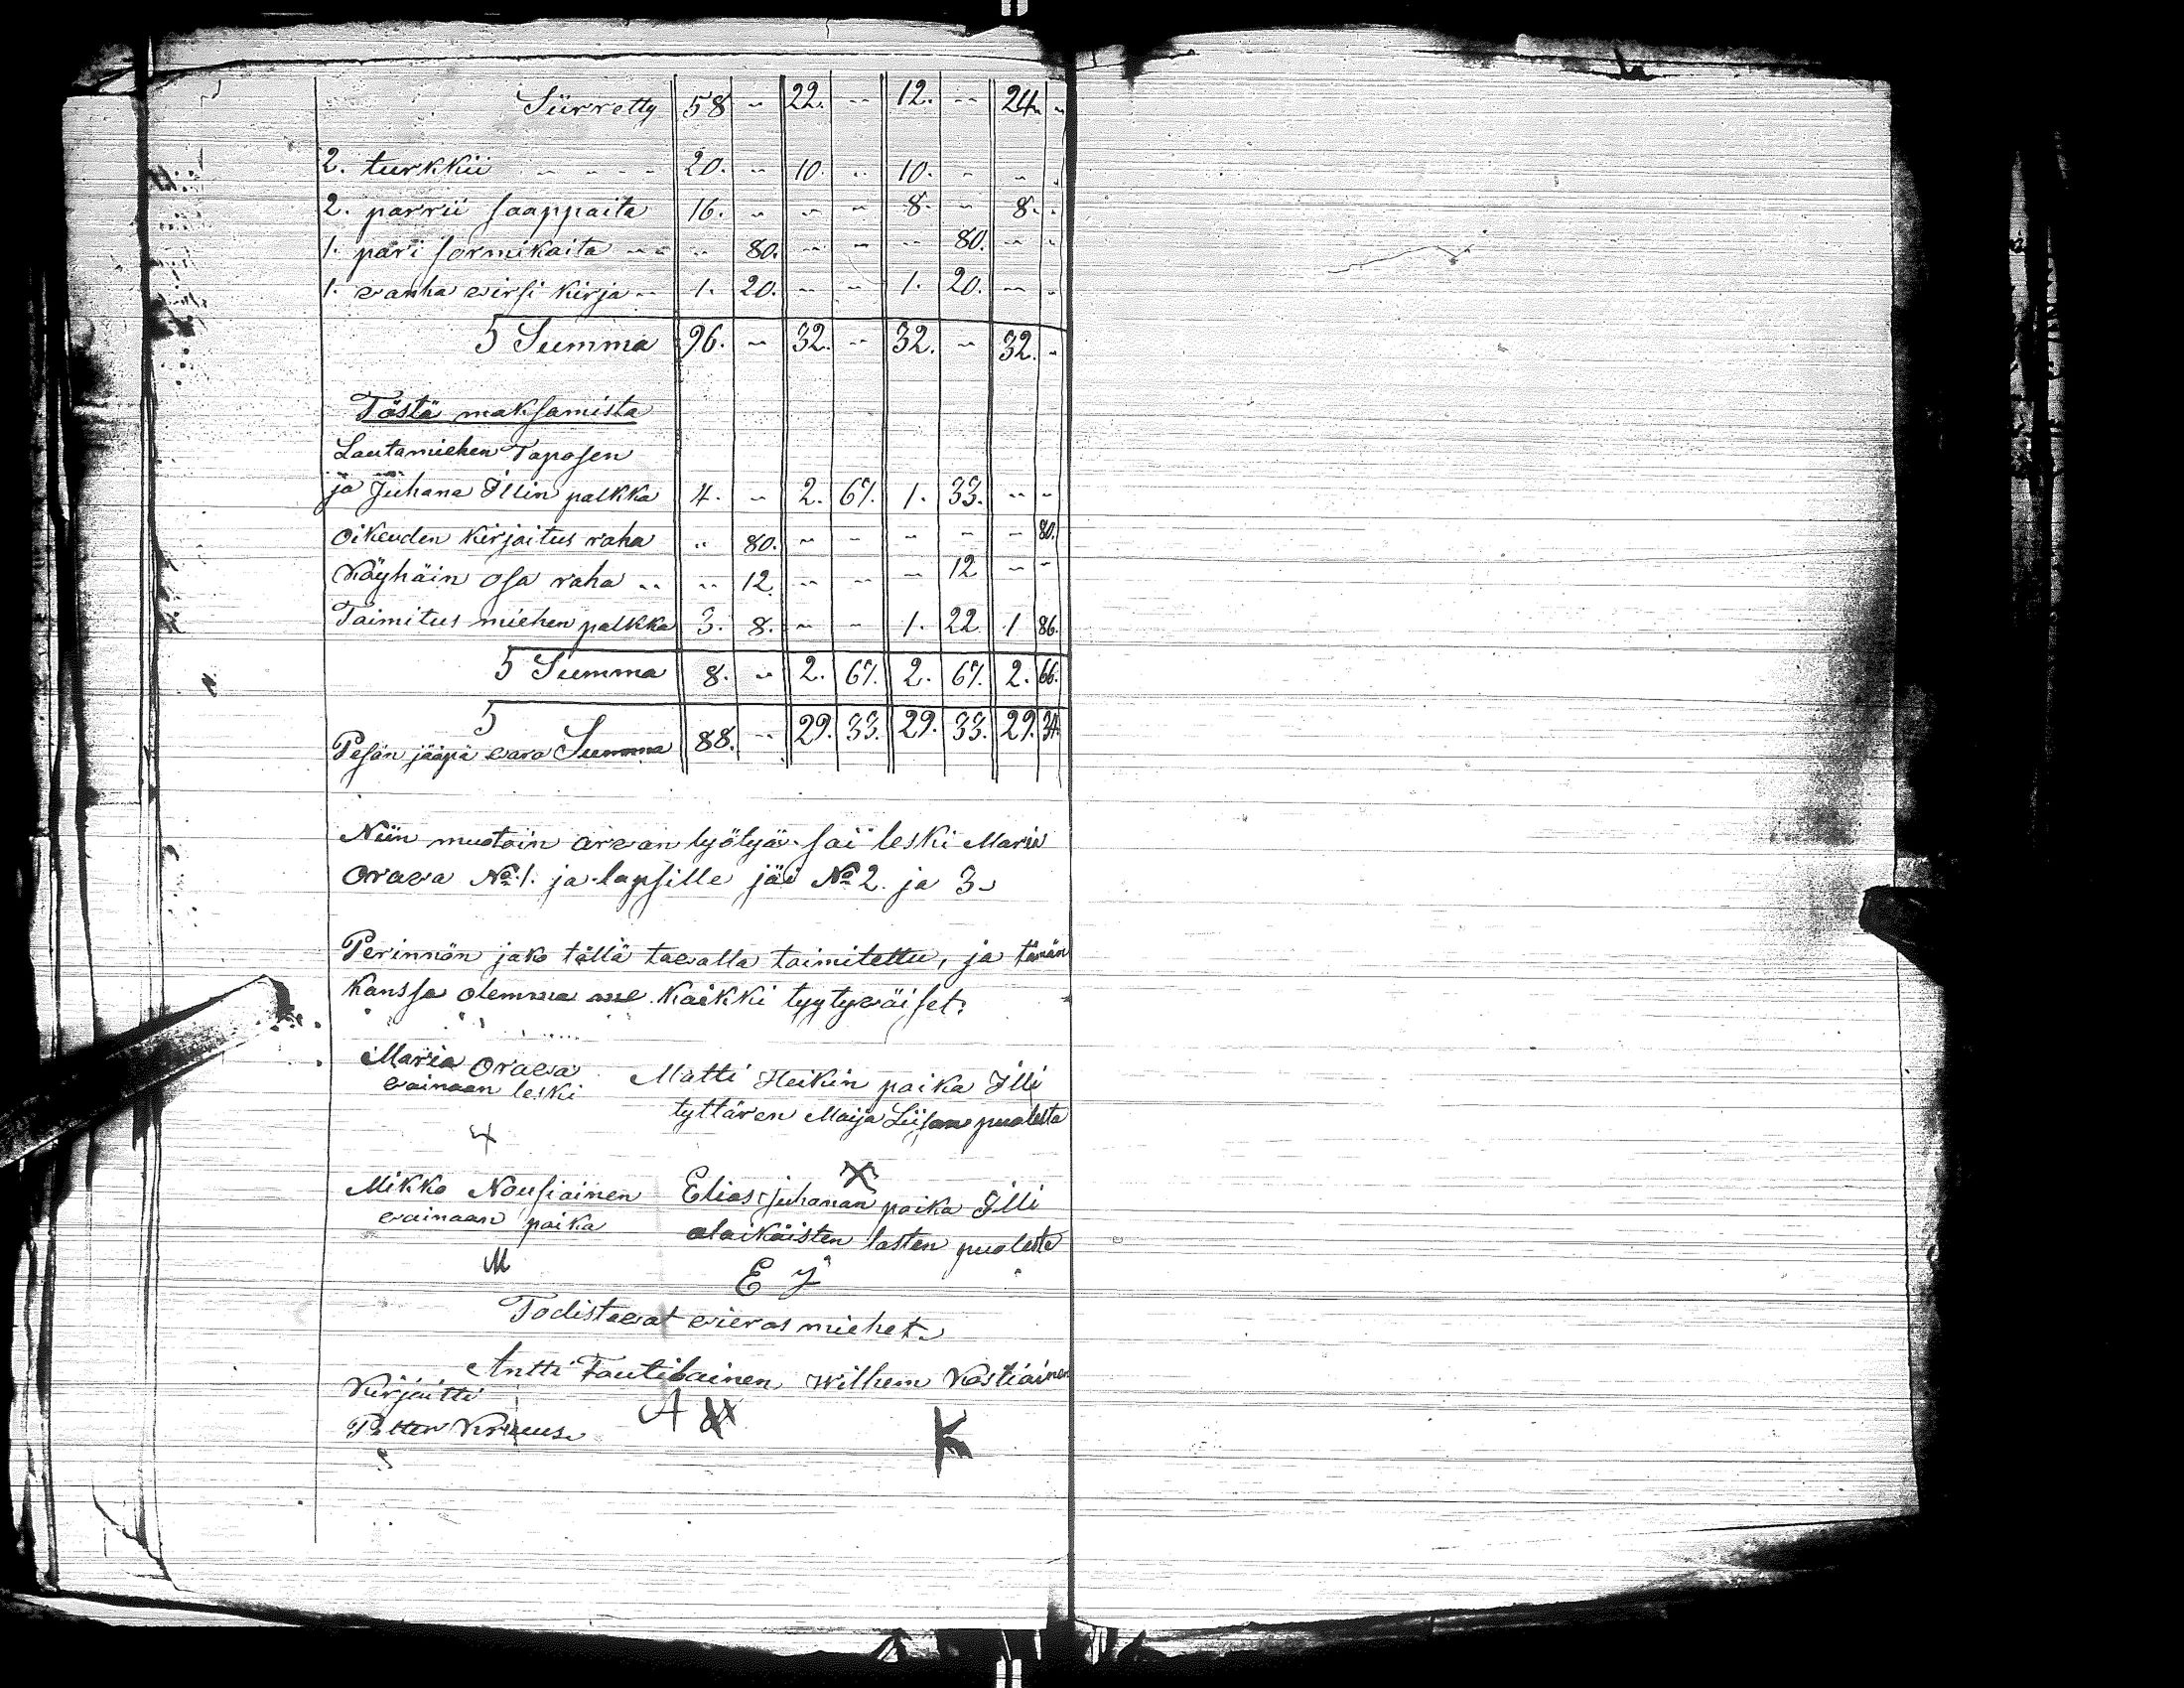 Siirretty 58 " 22. " 12. " 24 "
2. turkkii 20. " 10. " 10. " " "
2. parrii saappaita 16. " " " 8. " 8. "
1. pari sormikaita " 80. " " " 80. " "
1. vanha virsi kirja 1. 20. " " 1. 20. " "
Summa 96. " 32. " 32. " 32. "
Tästä maksamista
Lautamiehen Taposen
ja Juhana Illin palkka 4. " 2. 67. 1. 33. " "
Oikeuden kirjaitus raha " 80. " " " " " 80.
Käyhäin osa raha " 12. " " " 12 " "
Taimitus miehen palkka 3. 8. " " 1. 22. 1 86.
Summa 8. " 2. 67. 2. 67. 2. 66.
Pesän jääpä vara Summa 88. " 29. 33. 29. 33. 29. 34.
Niin muotoin arvan lyötyä sai leski Maria
Orava No 1. ja lapsille jäi No 2. ja 3.
Perinnön jako tällä tavalla taimitettu, ja tämän
kanssa olemma me kaikki tyytyväiset.
Maria Orava Matti Heikin paika Illi
vainaan leski tyttären Maija Liisan puolesta
X
Mikko Nousiainen Elias Juhanan paika Illi
vainaan paika alaikäisten lasten puolesta
M E J
Todistavat vieras miehet.
Antti Tautiainen Wilhem Kostiainen
Kirjaitti
Petter A K